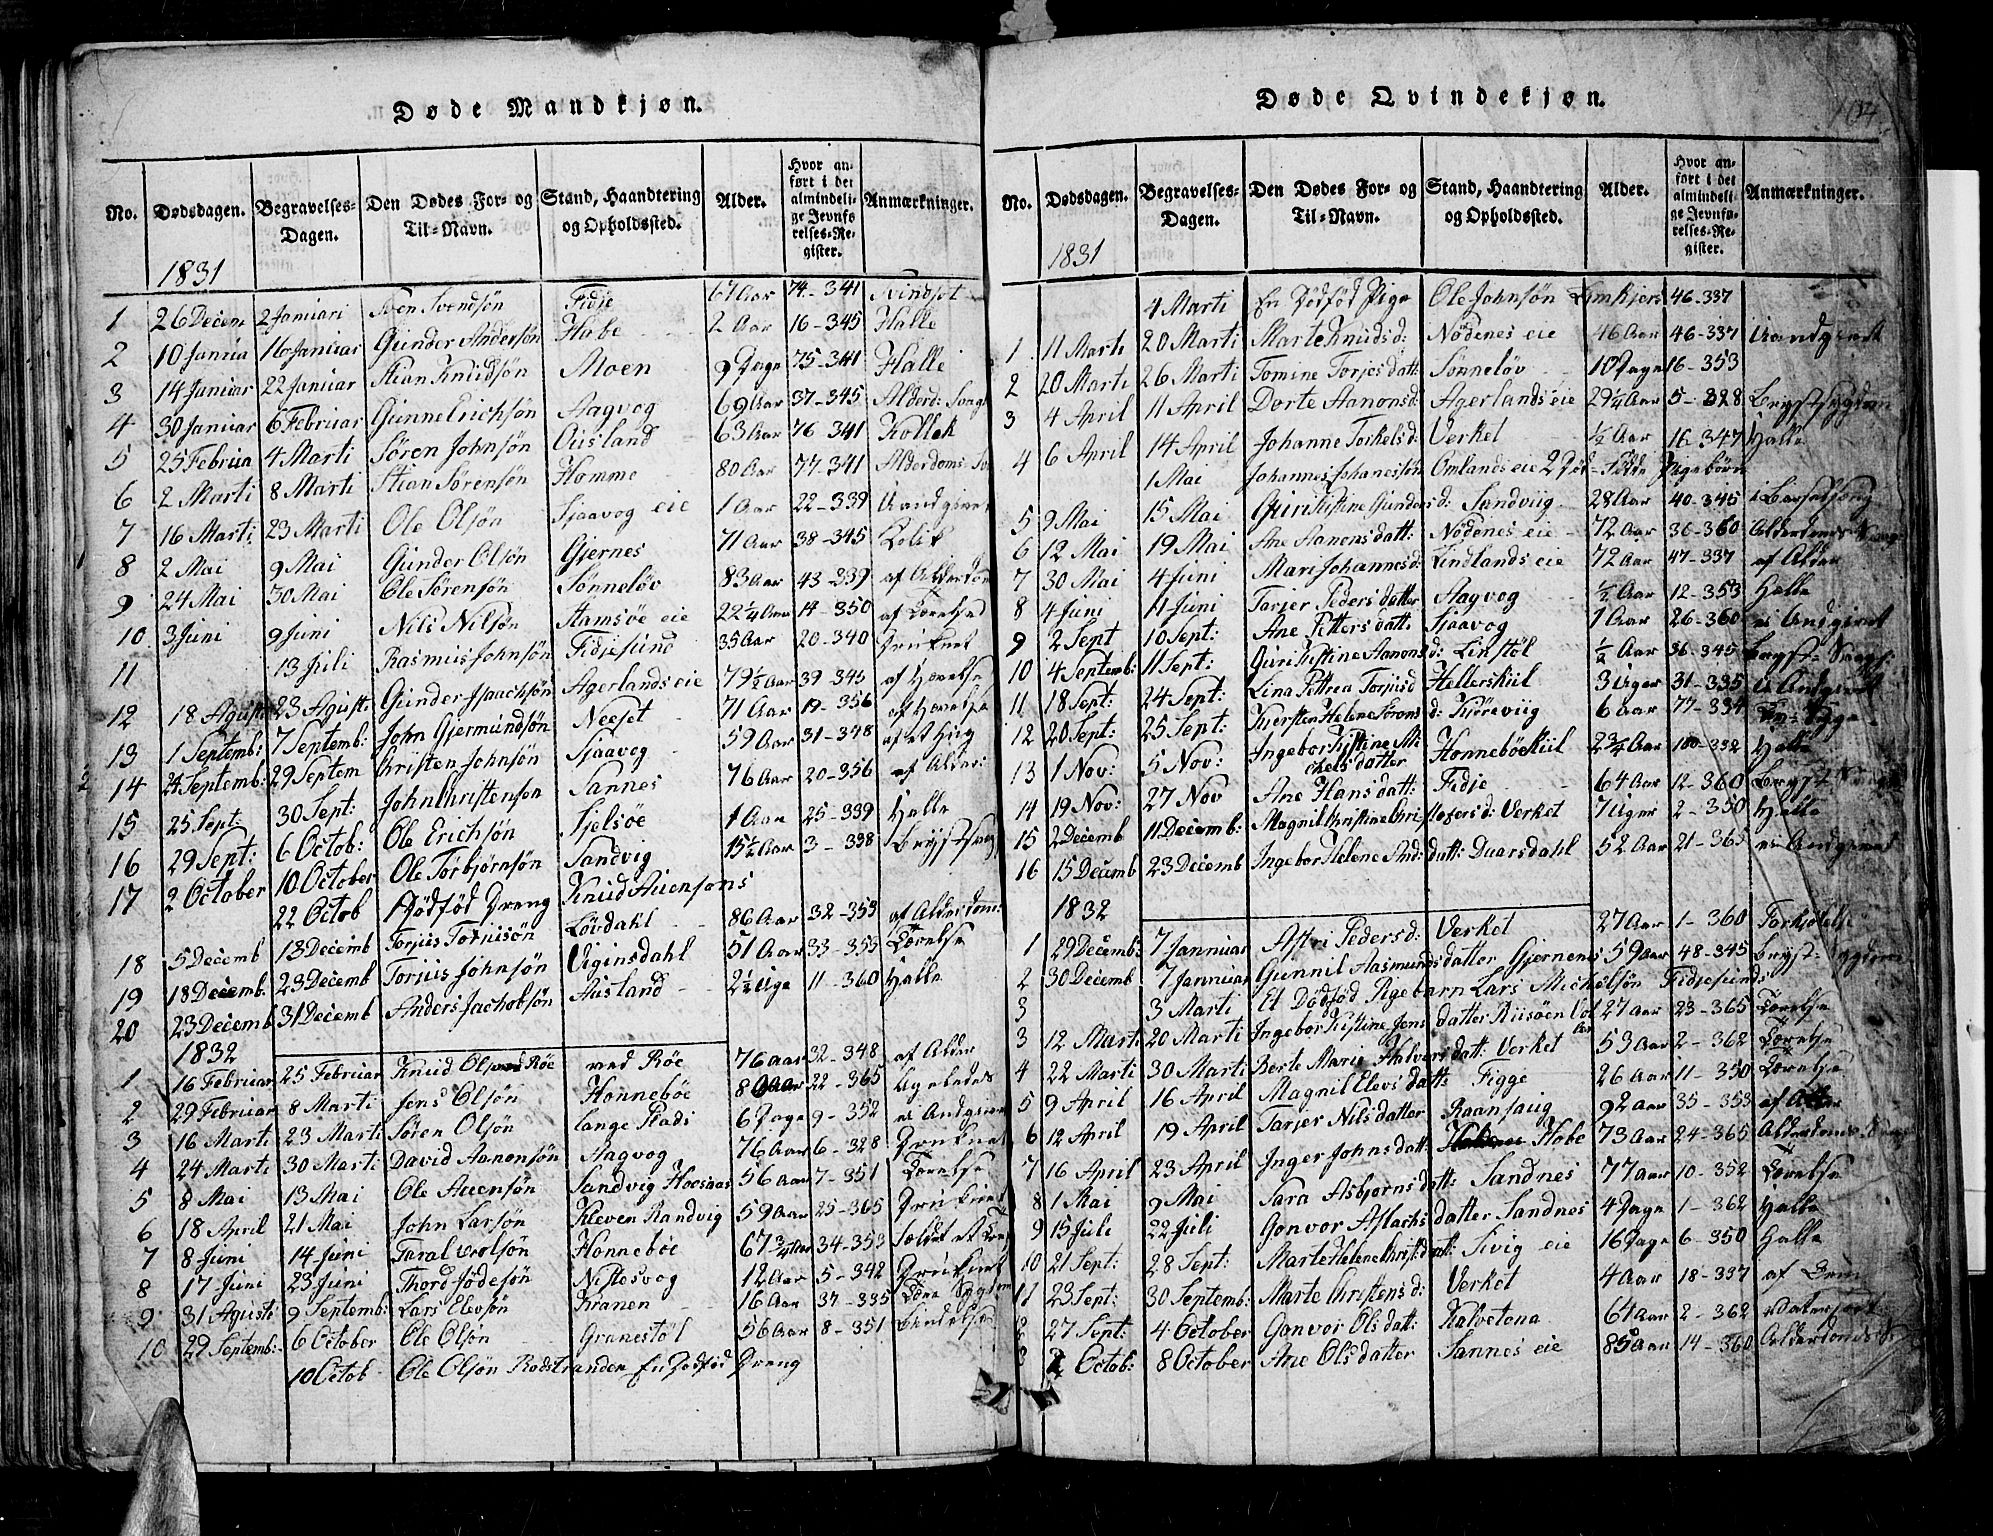 Døde Mandkjøn.
No. Dødsdagen. Begravelses-Dagen. Den Dødes For- og Til-Navn. Stand, Haandtering og Opholdssted. Alder. Hvor anført i det almindelige Jevnførelses-Register. Anmærkninger.
1831
1 26 Decem 2 Januari Sven Svendsön Fidje 67 Aar 74-341
2 10 Janua 16 Januar Gunder Andersön Habe 2 Aar 16-345 Halle
3 14 Januar 22 Januar Stian Knudsön Moen 9 Dage 75-341 Halle
4 30 Januar 6 Februar Gunne Erichsön Aagvog 69 Aar 37-345
5 25 Februa 4 Marti Sören Johnsön Ausland 63 Aar 76-341
6 2 Marti 8 Marti Stian Sörensön Homme 80 Aar 77-341
7 16 Marti 23 Marti Ole Olsön Sjaavog eie 1 Aar 22-339
8 2 Mai 9 Mai Gunder Olsön Gjernes 71 Aar 38-345 Kolik
9 24 Mai 30 Mai Ole Sörensön Sönnelöv 83 Aar 43-339 af Alderdom
10 3 Juni 9 Juni Nils Nilsön Hamsöe eie 22 1/4 Aar 14-350
11 13 Juli Rasmus Johnsön Fidjesund 35 Aar 20-340 Druknet
12 18 Agust 23 Agust: Gunder Isaachsön Agerlands eie 79 1/2 Aar 39-345
13 1 Septemb: 7 Septemb: John Gjermundsön Neeset 71 Aar 19-356
14 24 Septemb: 29 Septem Kristen Johnsön Sjaavog 59 Aar 31-348
15 25 Sept: 30 Sept: John Christenson Sannes 76 Aar 20-356 af Alder:
16 29 Sept: 6 Octob: Ole Erichsön Sjelsöe 1 Aar 25-339 Halle
17 2 October 10 October Ole Torbjörnsön Sandvig 15 1/2 Aar 3-338
22 Octob Dödföd Dreng Knud Auensons
18 5 Decemb 13 Decemb Torjus Torjusön Lövdahl 86 Aar 32-353 af Alderdom:
19 18 Decemb 23 Decemb Torjus Johnsön Viginsdahl 51 Aar 33-353
20 23 Decemb 31 Decemb Anders Jachobsön Ausland 2 1/2 Uge 11-360 Halle
1832
1 16 Februar 25 Februar Knud Ols ved Röe ved Röe 76 aar 32-348 af Alder
2 29 Februar 8 Marti Jens Olsön Honneböe 8 Aar 22-365
3 16 Marti 23 Marti Sören Olsön Lange Rads 6 Dage 9-352
4 24 Marti 30 Marti David Aanonsön Aagvog 76 Aar 6-328 Druknet
5 8 Mai 13 Mai Ole Auensön Sandvig Hoosaas 56 Aar 7-351
6 18 April 21 Mai John Larsön Kleven Randvig 59 Aar 25-365 Druknet
7 8 Juni 14 Juni Taral Wolsön Honneböe 67 3/4 Aar 34-353
8 17 Juni 23 Juni Thord Födesön Niflesvog 12 Aar 5-342 Druknet
9 31 Agusti 9 Septemb: Lars Elevsön Kranen 16 Aar 37-335
10 29 Septemb: 6 October Ole Olsön Granestöl 56 Aar 8-351
10 Octob Ole Olsön Rodstranden En Dödföd Dreng
Døde Qvindekjøn.
104
No. Dødsdagen. Begravelses-Dagen. Den Dødes For- og Til-Navn. Stand, Haandtering og Opholdssted. Alder. Hvor anført i det almindelige Jevnførelses-Register. Anmærkninger.
1831
4 Marti En Dödföd Pige Ole Johnsön Limkjers 46-337
1 11 Marti 20 Marti Marte Knudsd: Nödenes eie 46 Aar 46-337
2 20 Marti 26 Marti Tomine Torjesdatt: Sönnelöv 10 Dage 16-353
3 4 April 11 April Dorte Aanonsd: Agerlands eie 29 1/4 Aar 5-328 Brystsygdom
4 6 April 14 April Johanne Torkelsd: Verket 1/2 Aar 16-347 Halle
1 Mai Johannes Johanesön Omlands eie 2 Död-Födte Pigebörn
5 9 Mai 15 Mai Guri Kistine Gundersd: Sundviig 28 Aar 40-345 i Barselseng
6 12 Mai 19 Mai Ane Aanonsdatt: Nödenes eie 72 Aar 36-360
7 30 Mai 4 Juni Mari Johannesd: Lindlands eie 72 Aar 47-337 af Alder
8 4 Juni 11 Juni Tarjer Pedersdatter Aagvog 1/2 Aar 12-353 Halle
9 2 Sept 10 Sept: Ane Pettersdatt: Sjaavog 1 Aar 26-360
10 4 Septemb: 11 Sept: Guri Kistine Aanonsd: Linstöl 1/2 Aar 36-345
11 18 Sept: 24 Sept: Lina Pettrea Torjusd Hellerskiil 3 Uger 31-335
12 20 Sept: 25 Sept: Kjersten Helene Söronsd: Kjöreviig 6 Aar 77-334
13 1 Nov: 5 Nov: Ingebor Kistine Michelsdatter Honneböekiil 2 3/4 Aar 100-332 Halle
14 19 Nov: 27 Nov Ane Hansdatt: Fidje 64 Aar 12-360
15 2 Decemb 11 Decemb: Magnil Christine Christofersd: Verket 7 Uger 2-350 Halle
16 15 Decemb 23 Decemb Ingebor Helene And:datt: Duarsdahl 52 Aar 21-365
1832
1 29 Decemb: 7 Januuar Astri Pedersd: Verket 27 Aar 1-360
2 30 Decemb 7 Januuar Gunnil Aasmundsdatter Gjernenes 59 Aar 48-345
3 3 Marti Et Dödföd Pigebarn Lars Michelsön Fidjesunds
3 12 Marti 20 Marti Ingebor Kistine Jensdatter Riisöen 27 Aar 23-365
4 22 Marti 30 Marti Berte Marie Halversdatt: Verket 53 Aar 2-362
5 9 April 16 April Magnil Elevsdatt: Figge 26 Aar 11-350
6 12 April 19 April Tarjer Nilsdatter Raansaug 92 aar 35-353 af Alder
7 16 April 23 April Inger Johnsdatt: Habe 73 Aar 24-365
8 1 Mai 9 Mai Sara Asbjornsdatt: Sandnes 77 Aar 10-352
9 15 Juli 22 Juli Gonvor Aslachsdatter Sandnes 4 Dage 1-362 Halle
10 21 Sept: 28 Sept: Marte Helene Christ:datt: Sivig eie 16 Dage 6-350 Halle
11 23 Sept: 30 Septemb: Marte Christensd: Verket 4 Aar 18-337
2 27 Sept: 4 October Gonvor Olsdatt: Kalvetona 64 Aar 2-362
3 2 Octob: 8 October Ane Olsdatter Sannes eie 85 Aar 14-360